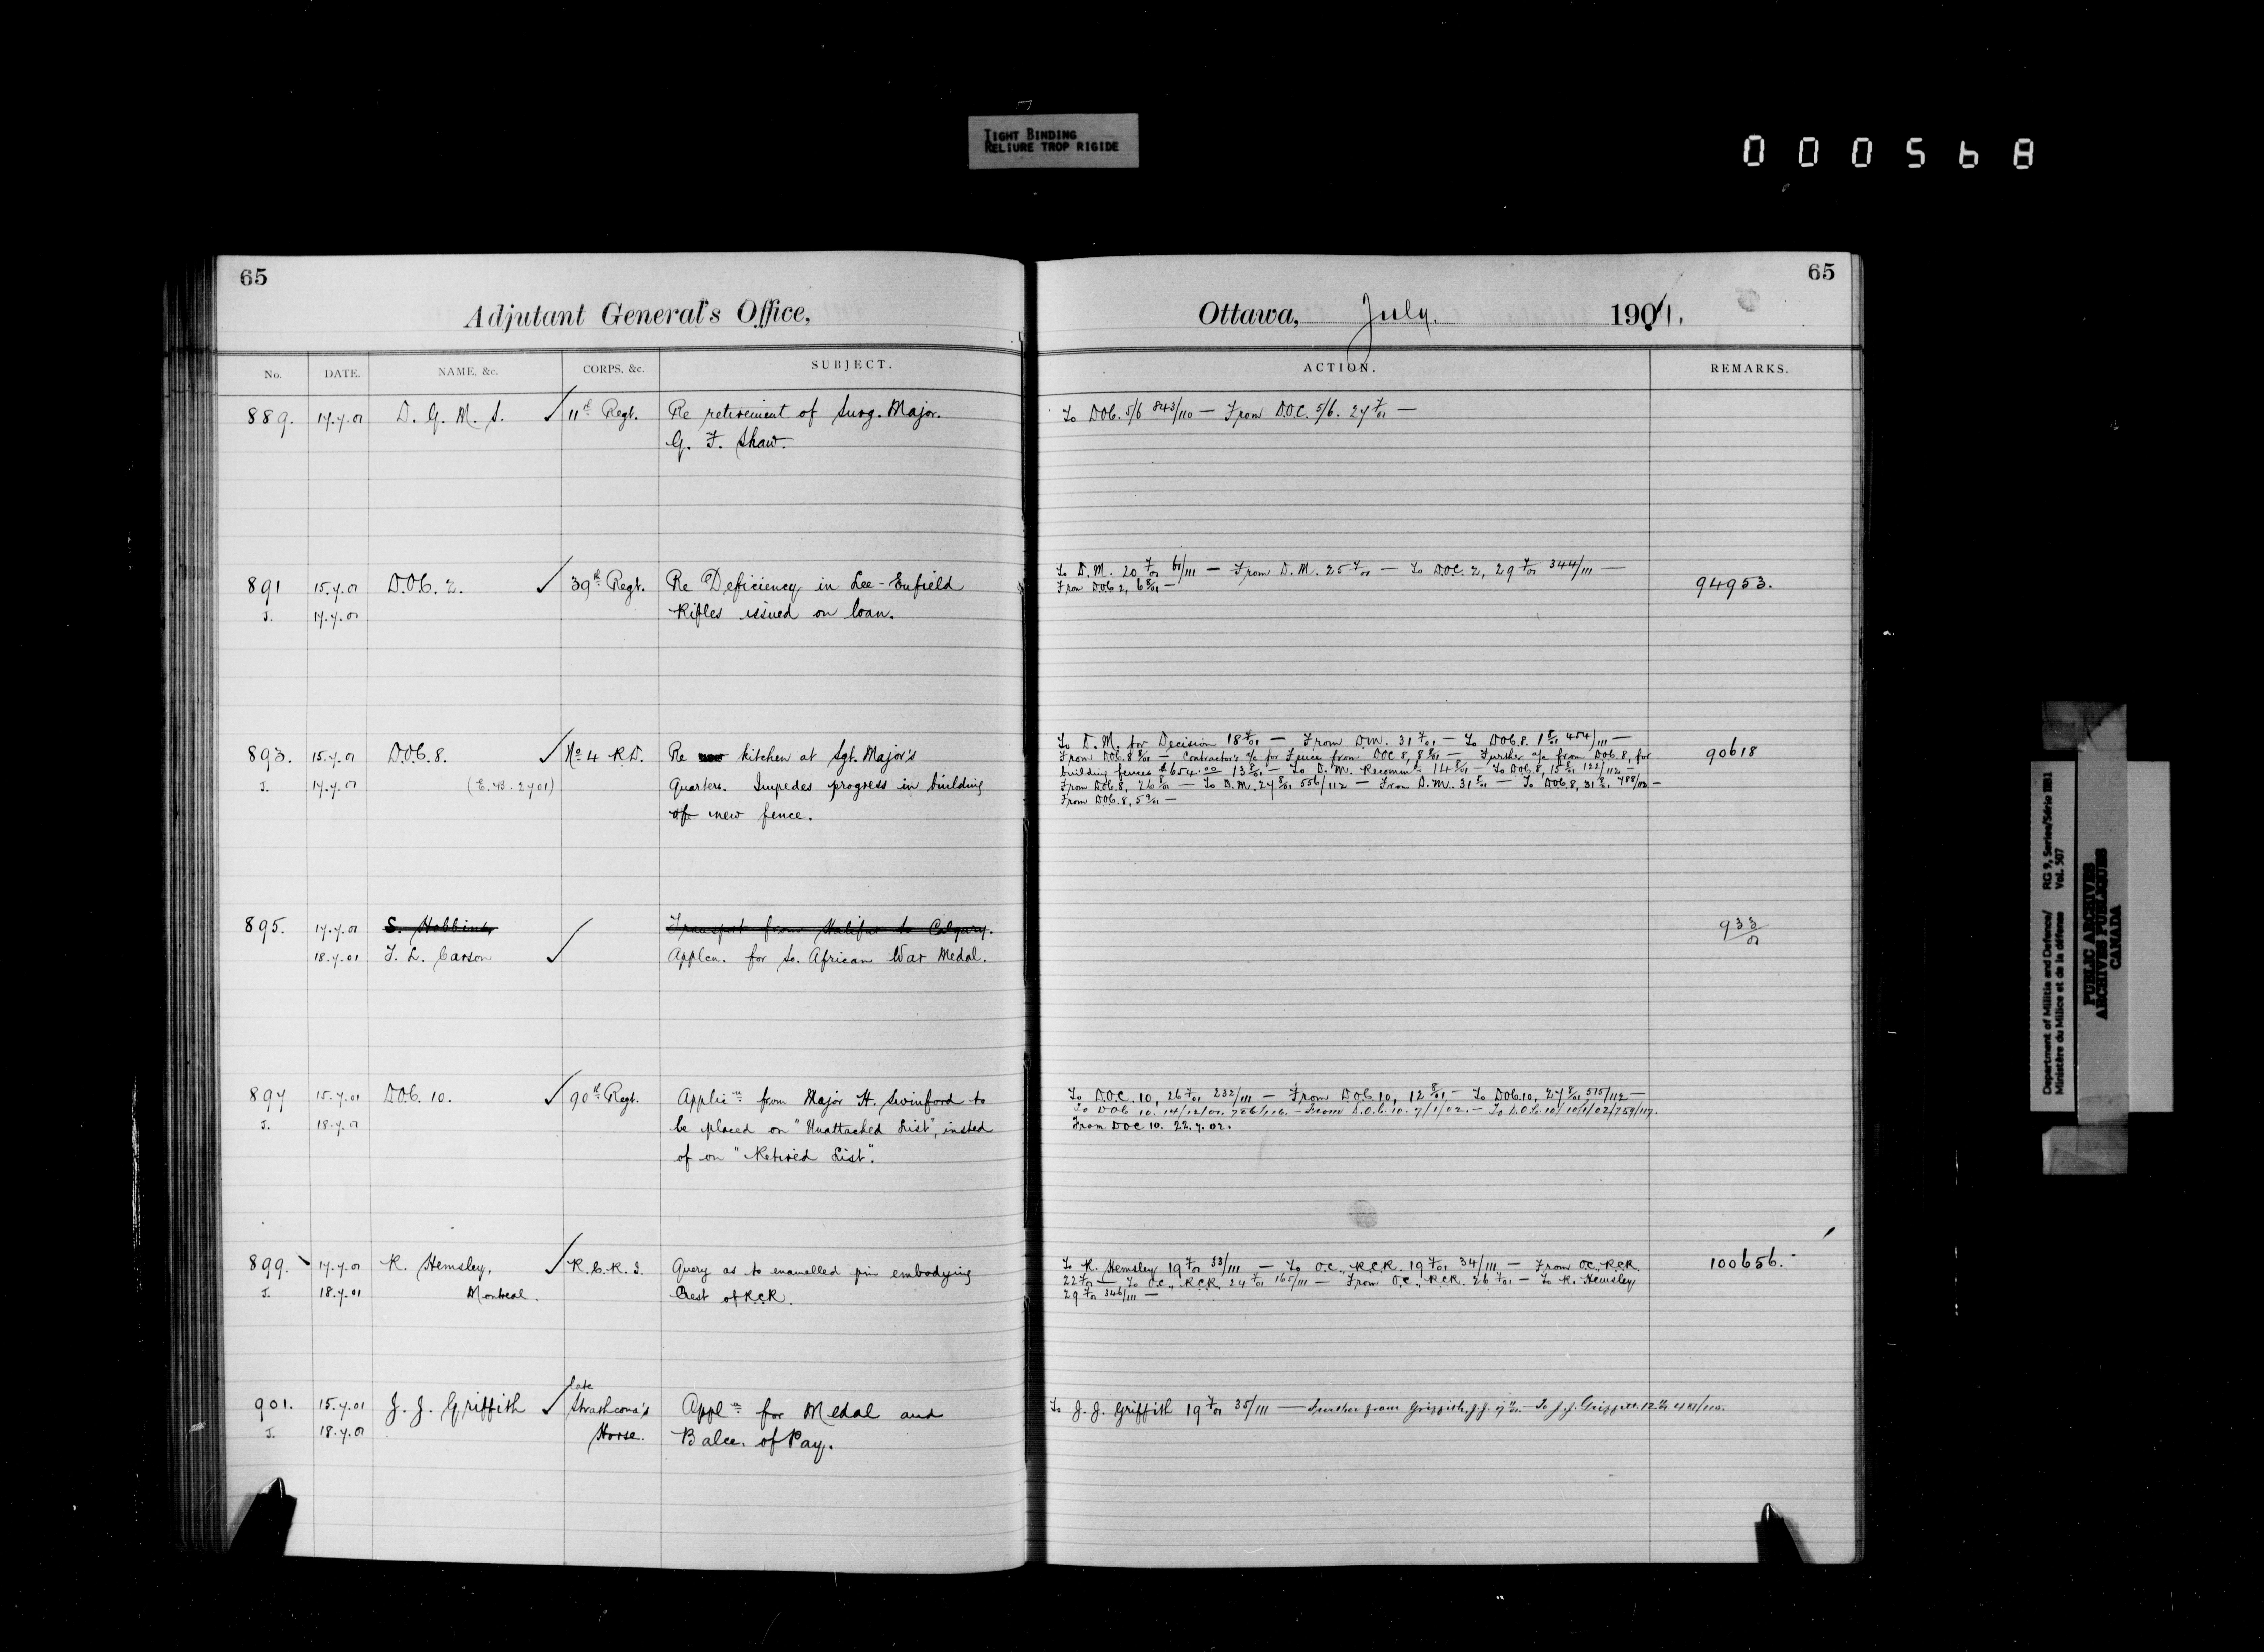 TIGHT BINDING
RELIURE TROP RIGIDE
000568
65
Adjutant General's Office,
No. DATE. NAME, &c. CORPS, &c. SUBJECT.
889. 17.7.01 D. G. M. S. ✓ 11th Regt. Re retirement of Surg. Major.
G. F. Shaw.
891 15.7.01 D.O.C. 2. ✓ 39th Regt. Re Deficiency in Lee-Enfield
J. 17.7.01 Rifles issued on loan.
893. 15.7.01 D.O.C. 8. ✓ No 4 R.D. Re new kitchen at Sgt. Major's
J. 17.7.01 (E.B. 2701) Quarters. Impedes progress in building
of new fence.
895. 17.7.01 S. Hobbins Transport from Halifax to Calgary.
18.7.01 T. L. Carson ✓ Applcn. for So. African War Medal.
897 15.7.01 D.O.C. 10. ✓ 90th Regt. Applicn from Major H. Swinford to
J. 18.7.01 be placed on "Unattached List", insted
of on "Retired List".
899. 17.7.01 R. Hemsley, ✓ R.C.R.I. Query as to enamelled pin embodying
J. 18.7.01 Montreal. Crest of R.C.R.
late
901. 15.7.01 J. J. Griffith ✓ Strathcona's Appln for Medal and
J. 18.7.01 Horse. Balce. of Pay.
65
Ottawa, July. 1901.
ACTION. REMARKS.
To DOC. 5/6 843/110 — From D.O.C. 5/6. 27 7/01 —
To D.M. 20 7/01 61/111 — From D.M. 25 7/01 — To D.O.C. 2, 29 7/01 344/111 —
From DOC 2, 6 8/01 — 94953.
To D.M. for Decision 18 7/01 — From DM. 31 7/01 — To DOC. 8. 1 8/01 454/111 —
From DOC. 8 8/01 — Contractor's a/c for Fence from DOC 8, 8 8/01 — Further a/c from DOC 8, for 90618
building fences $654.00 13 8/01 — To D.M. Recommn 14 8/01 — To DOC. 8, 15 8/01 122/112 —
From DOC. 8, 26 8/01 — To D.M. 27 8/01 556/112 — From D.M. 31 8/01 — To DOC. 8, 31 8/01
From DOC. 8, 5 9/01 —
933/01
To DOC. 10, 26 7/01 232/111 — From DOC. 10, 12 8/01 — To DOC. 10, 27 8/01 515/112 —
To DOC 10. 14/12/01. 756/116. — From D.O.C. 10. 7/1/02. — To D.O.C. 10 10/1/02/759/117.
From DOC 10. 22.7.02.
To R. Hemsley 19 7/01 33/111 — To O.C. R.C.R. 19 7/01 34/111 — From O.C. R.C.R. 100656.
22 7/01 — To O.C. R.C.R. 24 7/01 165/111 — From O.C. R.C.R. 26 7/01 — To R. Hemsley
29 7/01 346/111 —
To J. J. Griffith 19 7/01 35/111 — Further from Griffith, J.J. — To J.J. Griffith.
Department of Militia and Defence/ RG 9, Series/Série IIB1
Ministère du Milice et de la défense Vol. 507
PUBLIC ARCHIVES
ARCHIVES PUBLIQUES
CANADA